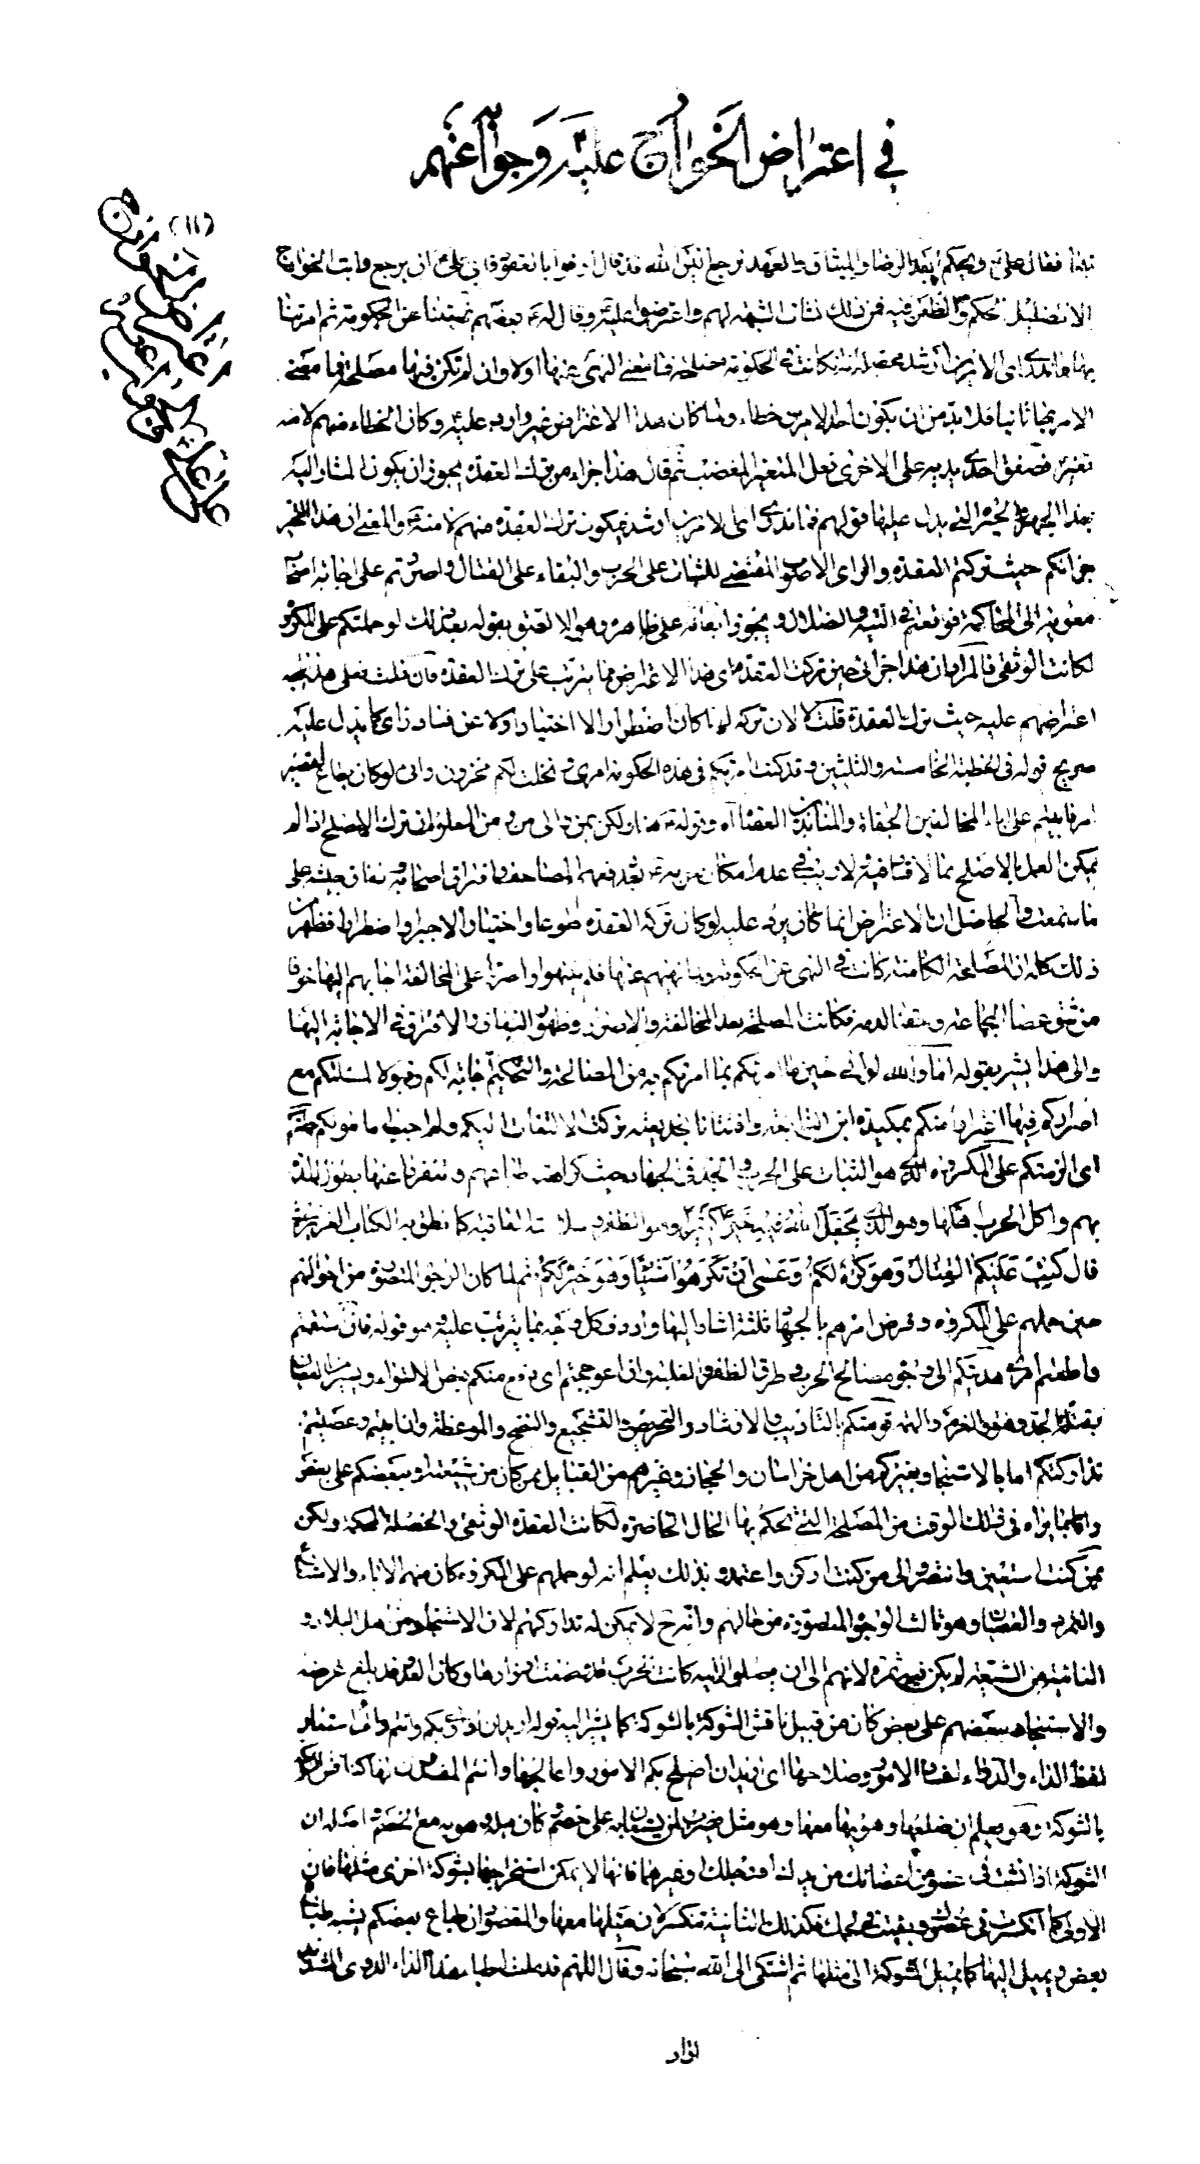 في اعتراض الخوارج عليه وجوابه عنهم
(١١)
اعتراض الخوارج
على علي وجوابه
فقال علي ويحكم ابعد الرضا والميثاق والعهد نرجع اليس الله قد قال اوفوا بالعقود فابى علي ان يرجع وابت الخوارج
الا تضليل التحكيم والطعن فيه فمن ذلك نشأت الشبهة لهم واعترضوا عليه وقال له بعضهم نهيتنا عن الحكومة ثم امرتنا
بها فما ندري اى الامرين ارشد محصله انه ان كانت في الحكومة مصلحة فما معنى النهى عنها اولا وان لم تكن فيها مصلحة فما معنى
الامر بها ثانيا فلا بد من ان يكون احد الامرين خطاء ولما كان هذا الاعتراض غير وارد عليه وكان الخطاء منهم لا منه
تغير فصفق احدى يديه على الاخرى فعل المتغير المغضب ثم قال هذا جزاء من ترك العقدة يجوز ان يكون المشار اليه
بهذا الجهل والحيرة التي يدل عليها قولهم فما ندرى اى الامرين ارشد فيكون ترك العقدة منهم لا منه والمعنى ان هذا التحير
جزائكم حيث تركتم العقدة والراى الاصوب المقتضى للثبات على الحرب والبقاء على القتال واصررتم على اجابة اصحاب
معوية الى المحاكمة فوقعتم في التيه والضلال ويجوز ابقائه على ظاهره وهو الالصق بقوله بعد ذلك لو حملتكم على المكروه
لكانت الوثقى فالمراد ان هذا جزائى حين تركت العقدة اى هذا الاعتراض مما يترتب على ترك العقدة فان قلت فعلى هذا يتجه
اعتراضهم عليه حيث ترك العقدة قلت كلا لان تركه لها كان اضطرارا لا اختيارا ولا عن فساد راى كما يدل عليه
صريح قوله في الخطبة الخامسة والثلثين وقد كنت امرتكم في هذه الحكومة امرى ونخلت لكم مخزون رائى لو كان يطاع لقصير
امر فابيتم على اباء المخالفين الجفاة والمنابذين العصاة آه وقوله هنا ولكن بمن والى من ومن المعلوم ان ترك الاصلح اذا لم
يمكن العمل بالاصلح مما لا فساد فيه ولا ريب في عدم امكان حربه بعد رفعهم المصاحف وافتراق اصحابه ونفاق جيشه على
ما سمعت والحاصل ان الاعتراض انما كان يرد عليه لو كان تركه العقدة طوعا واختيارا لا جبرا واضطرارا فظهر من
ذلك كله ان المصلحة الكامنة كانت في النهى عن الحكومة وما نهيهم عنها فلم ينتهوا واصروا على المخالفة اجابهم اليها خوفا
من شق عصا الجماعة وحقنا لدمه فكانت المصلحة بعد المخالفة والاصرار وظهور النفاق والافتراق في الاجابة اليها
والى هذا يشير بقوله اما والله لو انى حين ما امرتكم بما امرتكم به من المصالحة والتحكيم اجابة لكم وقبولا لمسئلتكم مع
اصراركم فيها اغترارا منكم بمكيدة ابن النابغة وافتتانا بخديعته تركت الالتفات اليكم ولم اجب مامولكم حملتكم
اى الزمتكم على المكروه الذي هو الثبات على الحرب والجد في الجهاد حيث كراهة طباعهم وتنفرنا عنها بطول المدة
بهم واكل الحرب اهلها وهو الذي يجعل الله فيه خيرا كثيرا وهو الظفر وسلامة العاقبة كما نطق به الكتاب العزيز
قال كتب عليكم القتال وهو كره لكم وعسى ان تكرهوا شيئا وهو خير لكم ثم لما كان الوجوه المتصورة من احوالهم
حين حملهم على المكروه وفرض امرهم بالجهاد ثلثة اشار اليها واردف كل وجه بما يترتب عليه وهو قوله فان استقمتم
واطعتم امرى هديتكم الى وجوه مصالح الحرب وطرق الظفر والغلبة وان اعوججتم اى وقع منكم بعض الالتواء ويسير من العصيان
بقلة الجد وفتور العزم والهمة قومتكم بالتاديب والارشاد والتحريص والتشجيع والنصح والموعظة وان ابيتم وعصيتم
تداركتكم اما بالاستنجاد بغيركم من اهل خراسان والحجاز وغيرهم من القبائل ممن كان من شيعته او ببعضكم على بعض
واما بما يراه في ذلك الوقت من المصلحة التي تحكم بها الحال الحاضرة لكانت العقدة الوثقى والخصلة المحكمة ولكن
بمن كنت استعين وانتصر والى من كنت اركن واعتمد وبذلك يعلم انه لو حملهم على المكروه كان منهم الاباء والامتناع
والتمرد والعصيان وهو ثالث الوجوه المتصورة من حالهم وانه ح لا يمكن له تداركهم لان الاستنجاد من اهل البلاد
النائية من الشيعة لم يكن فيه ثمرة لانهم الى ان يصلوا اليه كانت الحرب قد وضعت اوزارها وكان العدو قد بلغ غرضه
والاستنجاد ببعضهم على بعض كان من قبيل ناقش الشوكة بالشوكة كما يشير اليه قوله اريد ان اداوى بكم وانتم دائى استعار
لفظ الداء والدواء لفساد الامور وصلاحها اى اريد ان اصلح بكم الامور واعالجها وانتم المفسدون لها كناقش الشوكة
بالشوكة وهو يعلم ان ضلعها وهواها معها وهو مثل يضرب لمن يستعان به على خصم كان ميله وهواه مع الخصم اصله ان
الشوكة اذا نشبت في عضو من اعضائك من يدك او رجلك او غيرهما فانها لا يمكن استخراجها بشوكة اخرى مثلها فان
الاولى كما انكسرت في عضوك وبقيت في لحمك فكذلك الثانية تنكسر لان ميلها معها والمقصود ان طباع بعضكم يشبه طباع
بعض ويميل اليها كما يميل الشوكة الى مثلها ثم اشتكى الى الله سبحانه وقال اللهم قد ملت اطباء هذا الداء الدوى الشديد